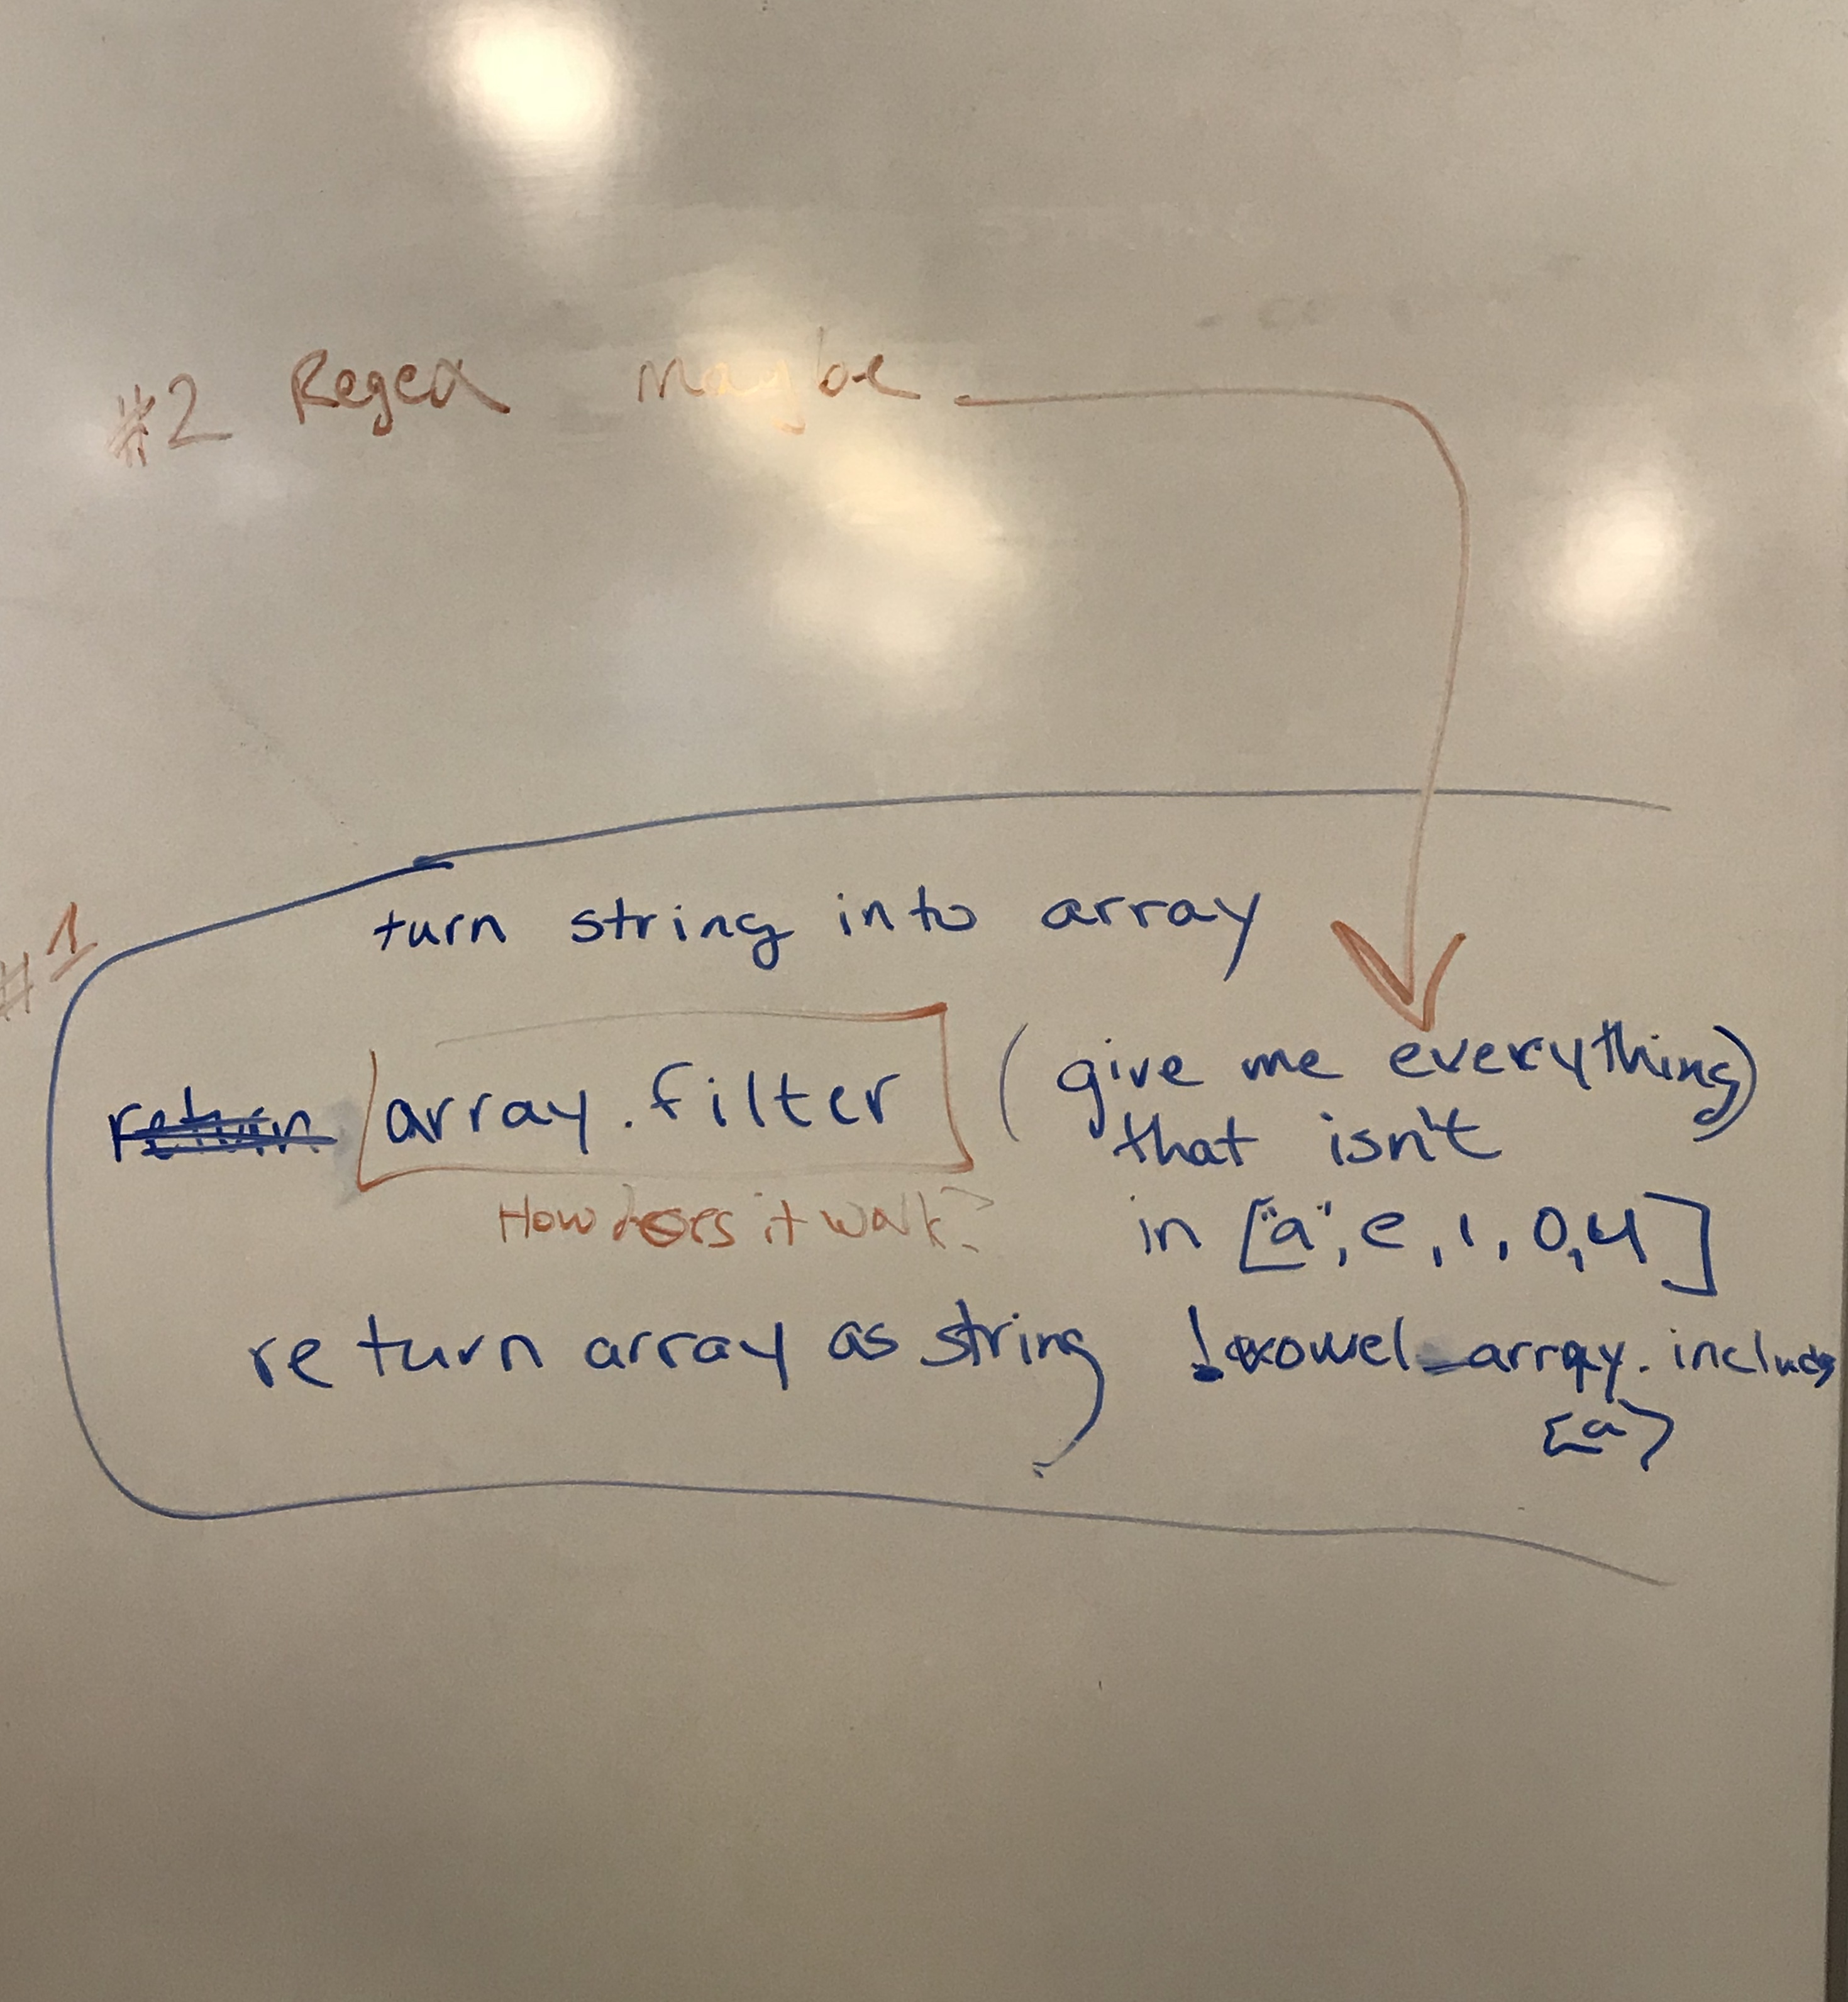 #2 Regex maybe
#1
turn string into array
return array.filter (give me everything)
that isn't
How does it work?
in ["a", e, i, o, u]
return array as string !vowel_array.includes
(a)